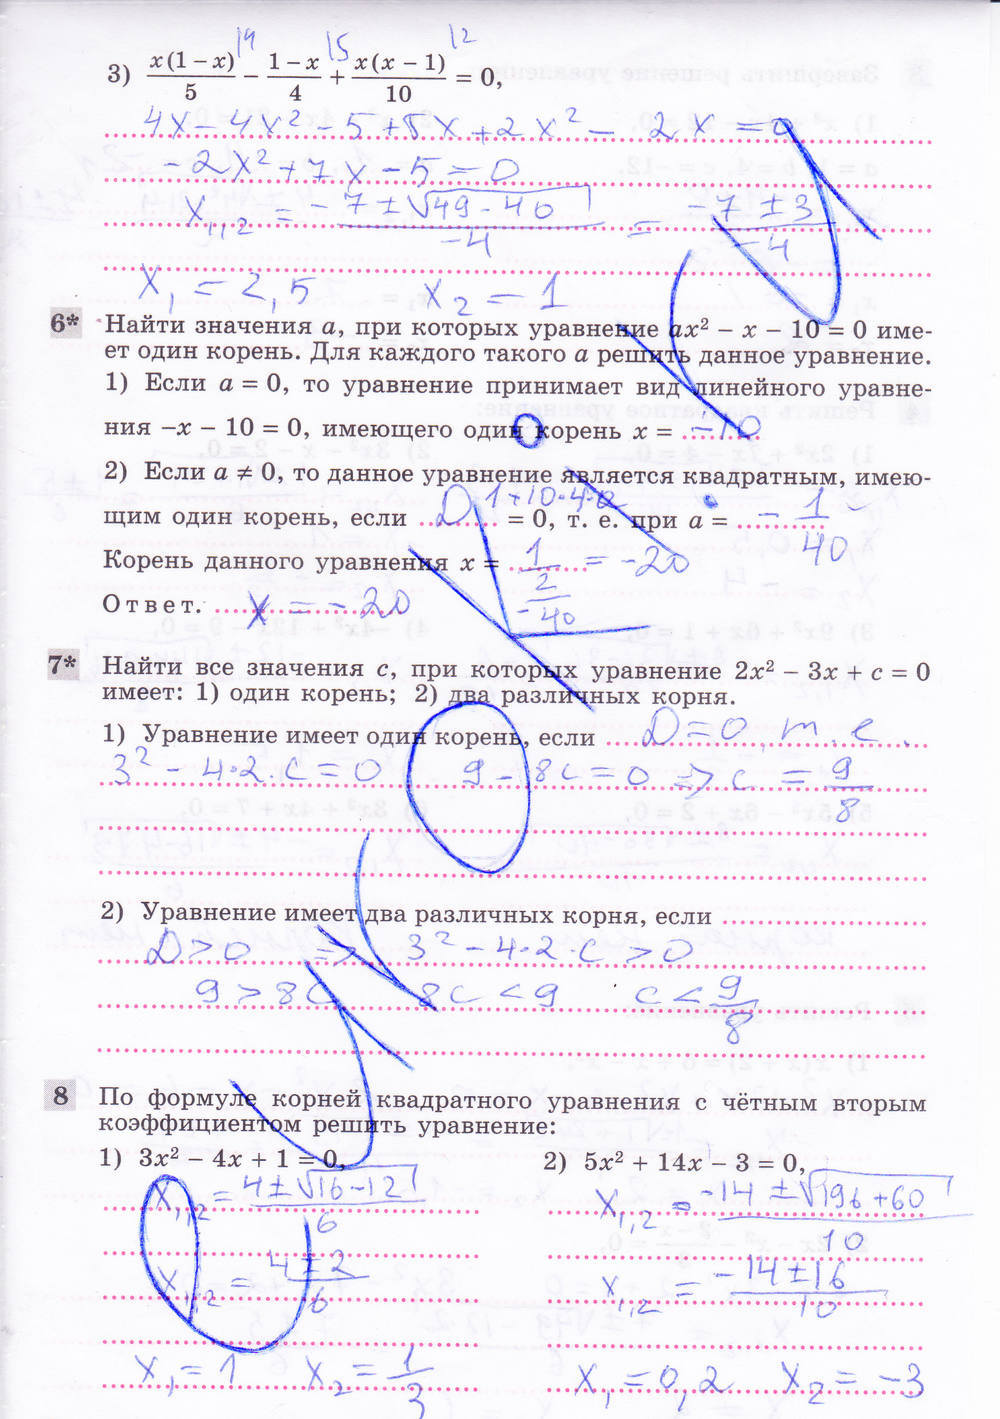 |4 |5 |2
3) x(1 − x)/5 − (1 − x)/4 + x(x − 1)/10 = 0,
4x − 4x² − 5 + 5x + 2x² − 2x = 0
−2x² + 7x − 5 = 0
x₁,₂ = (−7 ± √(49 − 40))/(−4) = (−7 ± 3)/(−4)
x₁ = 2,5 x₂ = 1
6* Найти значения a, при которых уравнение ax² − x − 10 = 0 име-
ет один корень. Для каждого такого a решить данное уравнение.
1) Если a = 0, то уравнение принимает вид линейного уравне-
ния −x − 10 = 0, имеющего один корень x = −10
2) Если a ≠ 0, то данное уравнение является квадратным, имею-
щим один корень, если D 1+10·4·a = 0, т. е. при a = −1/40
Корень данного уравнения x = 1/(2/−40) = −20
Ответ. x = −20
7* Найти все значения c, при которых уравнение 2x² − 3x + c = 0
имеет: 1) один корень; 2) два различных корня.
1) Уравнение имеет один корень, если D = 0, т. е.
3² − 4·2·c = 0 9 − 8c = 0 => c = 9/8
2) Уравнение имеет два различных корня, если
D > 0 => 3² − 4·2·c > 0
9 > 8c 8c < 9 c < 9/8
8 По формуле корней квадратного уравнения с чётным вторым
коэффициентом решить уравнение:
1) 3x² − 4x + 1 = 0, 2) 5x² + 14x − 3 = 0,
x₁,₂ = (4 ± √(16 − 12))/6 x₁,₂ = (−14 ± √(196 + 60))/10
x₁,₂ = (4 ± 2)/6 x₁,₂ = (−14 ± 16)/10
x₁ = 1 x₂ = 1/3 x₁ = 0,2 x₂ = −3